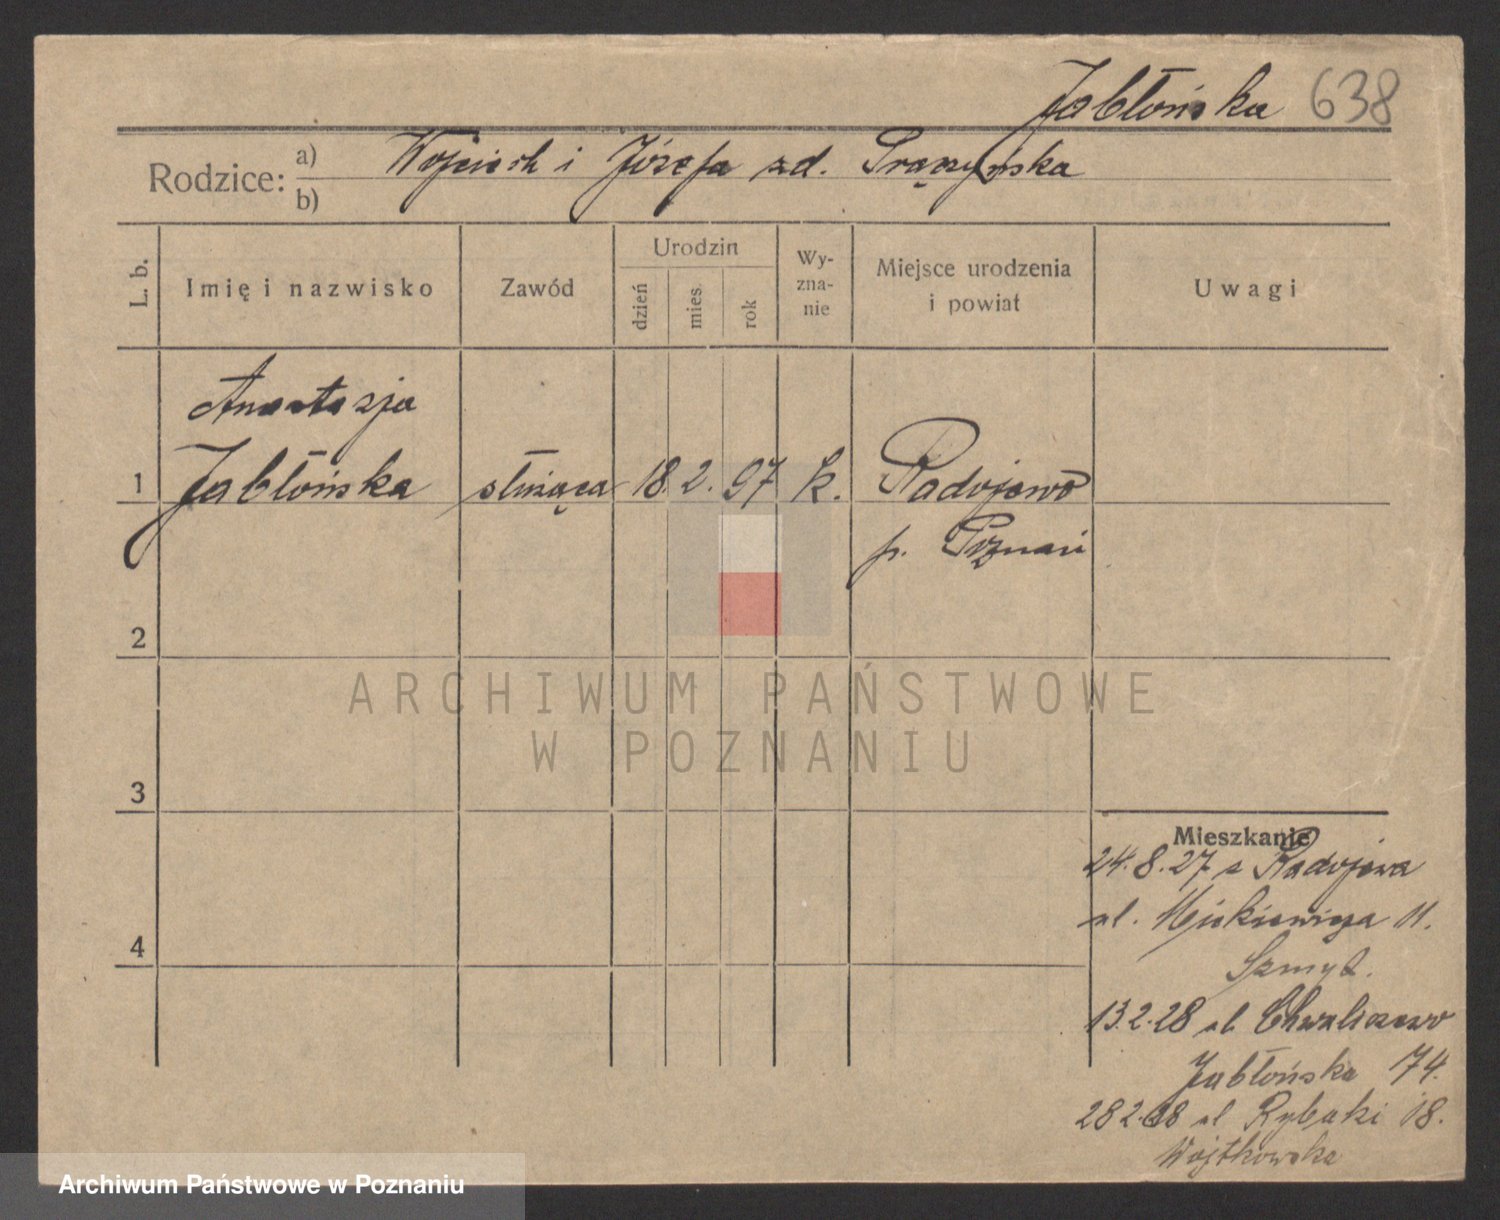 Jabłońska 638
Rodzice: a) Wojciech i Józefa zd.
b)
L. b.
Imię i nazwisko
Zawód
Urodzin
dzień
mies.
rok
Wy-
zna-
nie
Miejsce urodzenia
i powiat
Uwagi
Anastazja
1 Jabłońska służąca 18. 2. 97 k. Radojewo
p. Poznań
2
3
4
Mieszkanie
24.8.27 z Radojewa
ul. Mickiewicza 11.
Szmyt.
13.2.28 ul Chwaliszewo
Jabłońska 74.
28 2.28 ul Rybaki 18.
Wojtkowska
ARCHIWUM PAŃSTWOWE
W POZNANIU
Archiwum Państwowe w Poznaniu